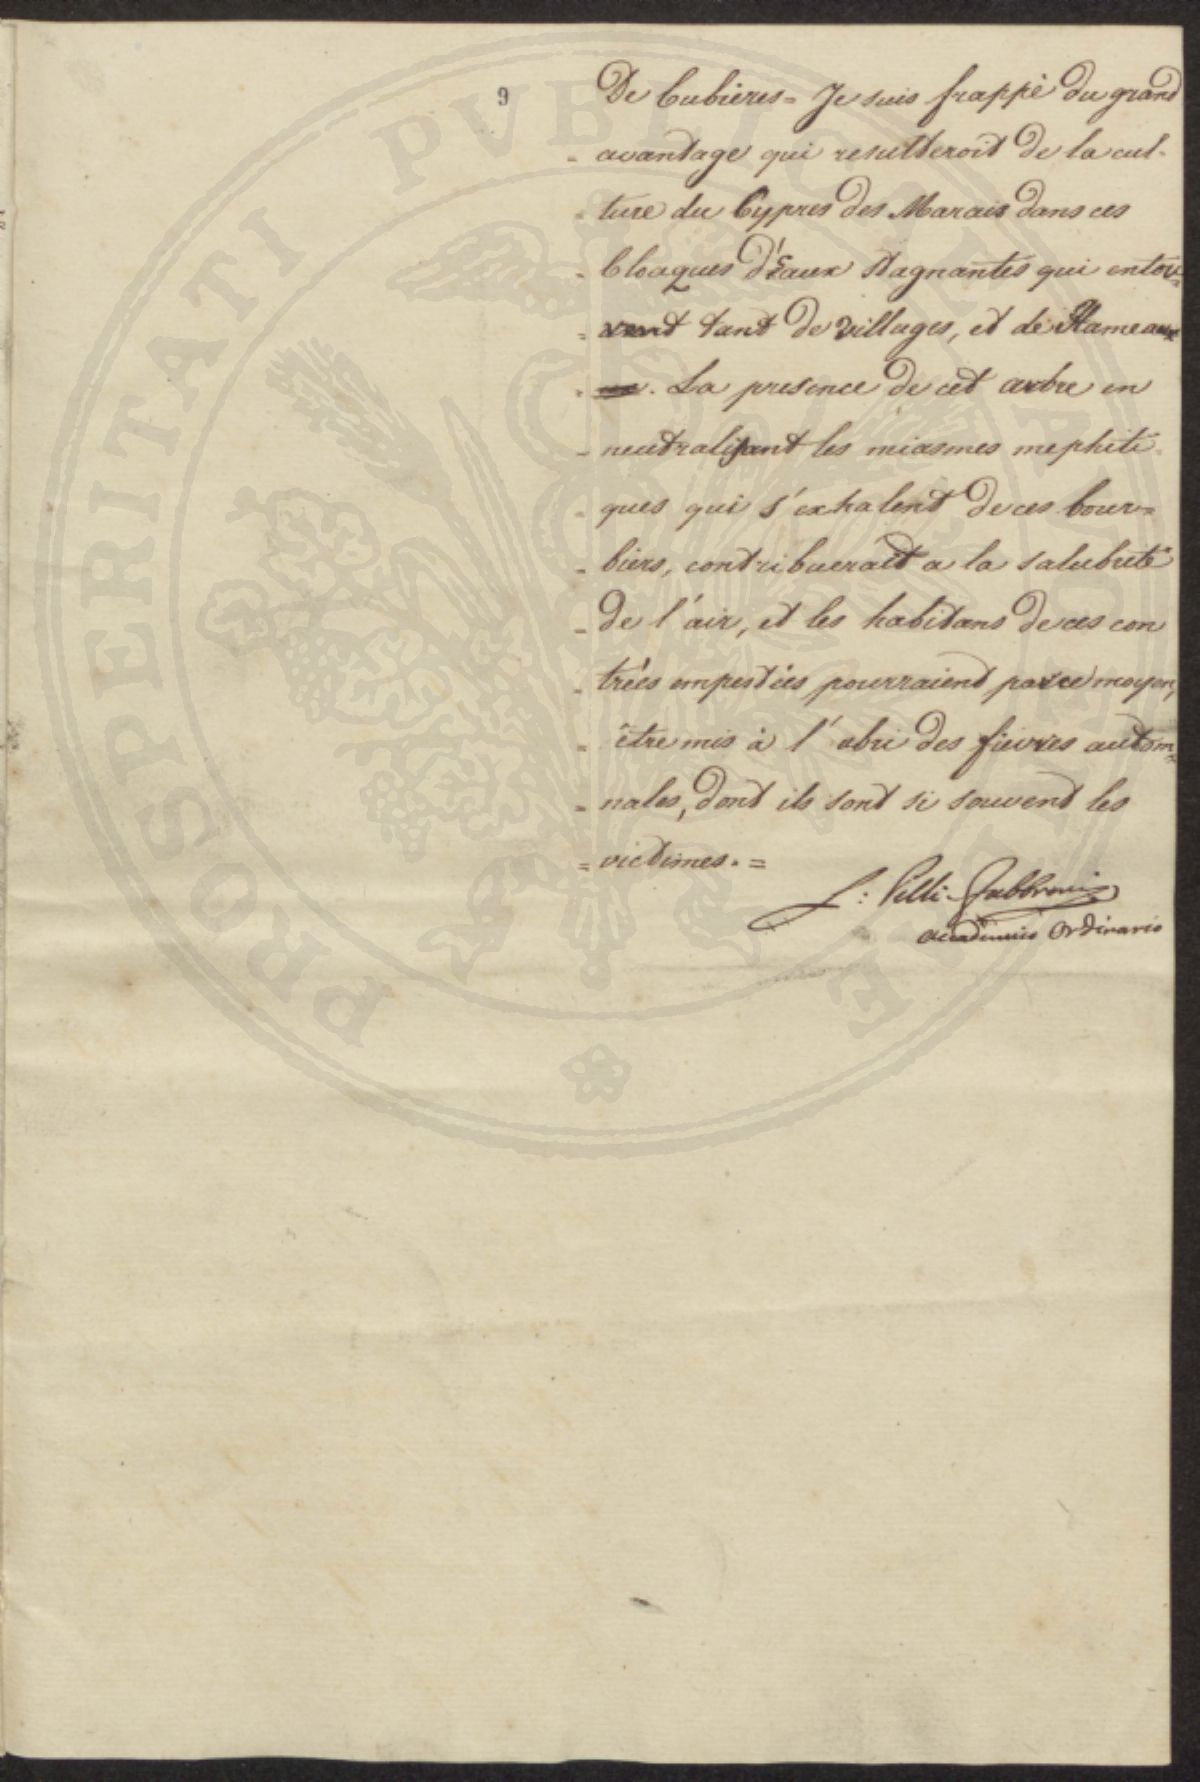 9
De Cubieres = Je suis frappè du grand
= avantage qui resulteroit de la cul-
= ture du Cypres des Marais dans ces
= Cloaques d'Eaux Stagnantes qui entou=
= rent tant de villages, et de Hameaux
= . La presence de cet arbre en
= neutralisant les miasmes mephiti=
= ques qui s'exhalent de ces bour=
= biers, contribuerait a la salubrité
= de l'air, et les habitans de ces con
= trées empestées pourraient par ce moyen,
= être mis à l'abri des fievres autom=
= nales, dont ils sont si souvent les
= victimes. =
L: Pelli-Fabbroni
Accademico Ordinario
PROSPERITATI PVBLICAE AVGENDAE